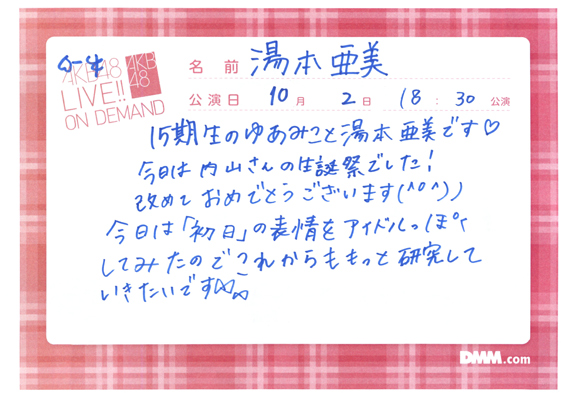 AKB48
AKB
48
LIVE!!
ON DEMAND
名前 湯本亜美
公演日 10月 2日 18:30 公演
15期生のゆあみこと湯本亜美です♡
今日は内山さんの生誕祭でした!
改めておめでとうございます(^o^))
今日は「初日」の表情をアイドルっぽく
してみたのでこれからももっと研究して
いきたいです
DMM.com